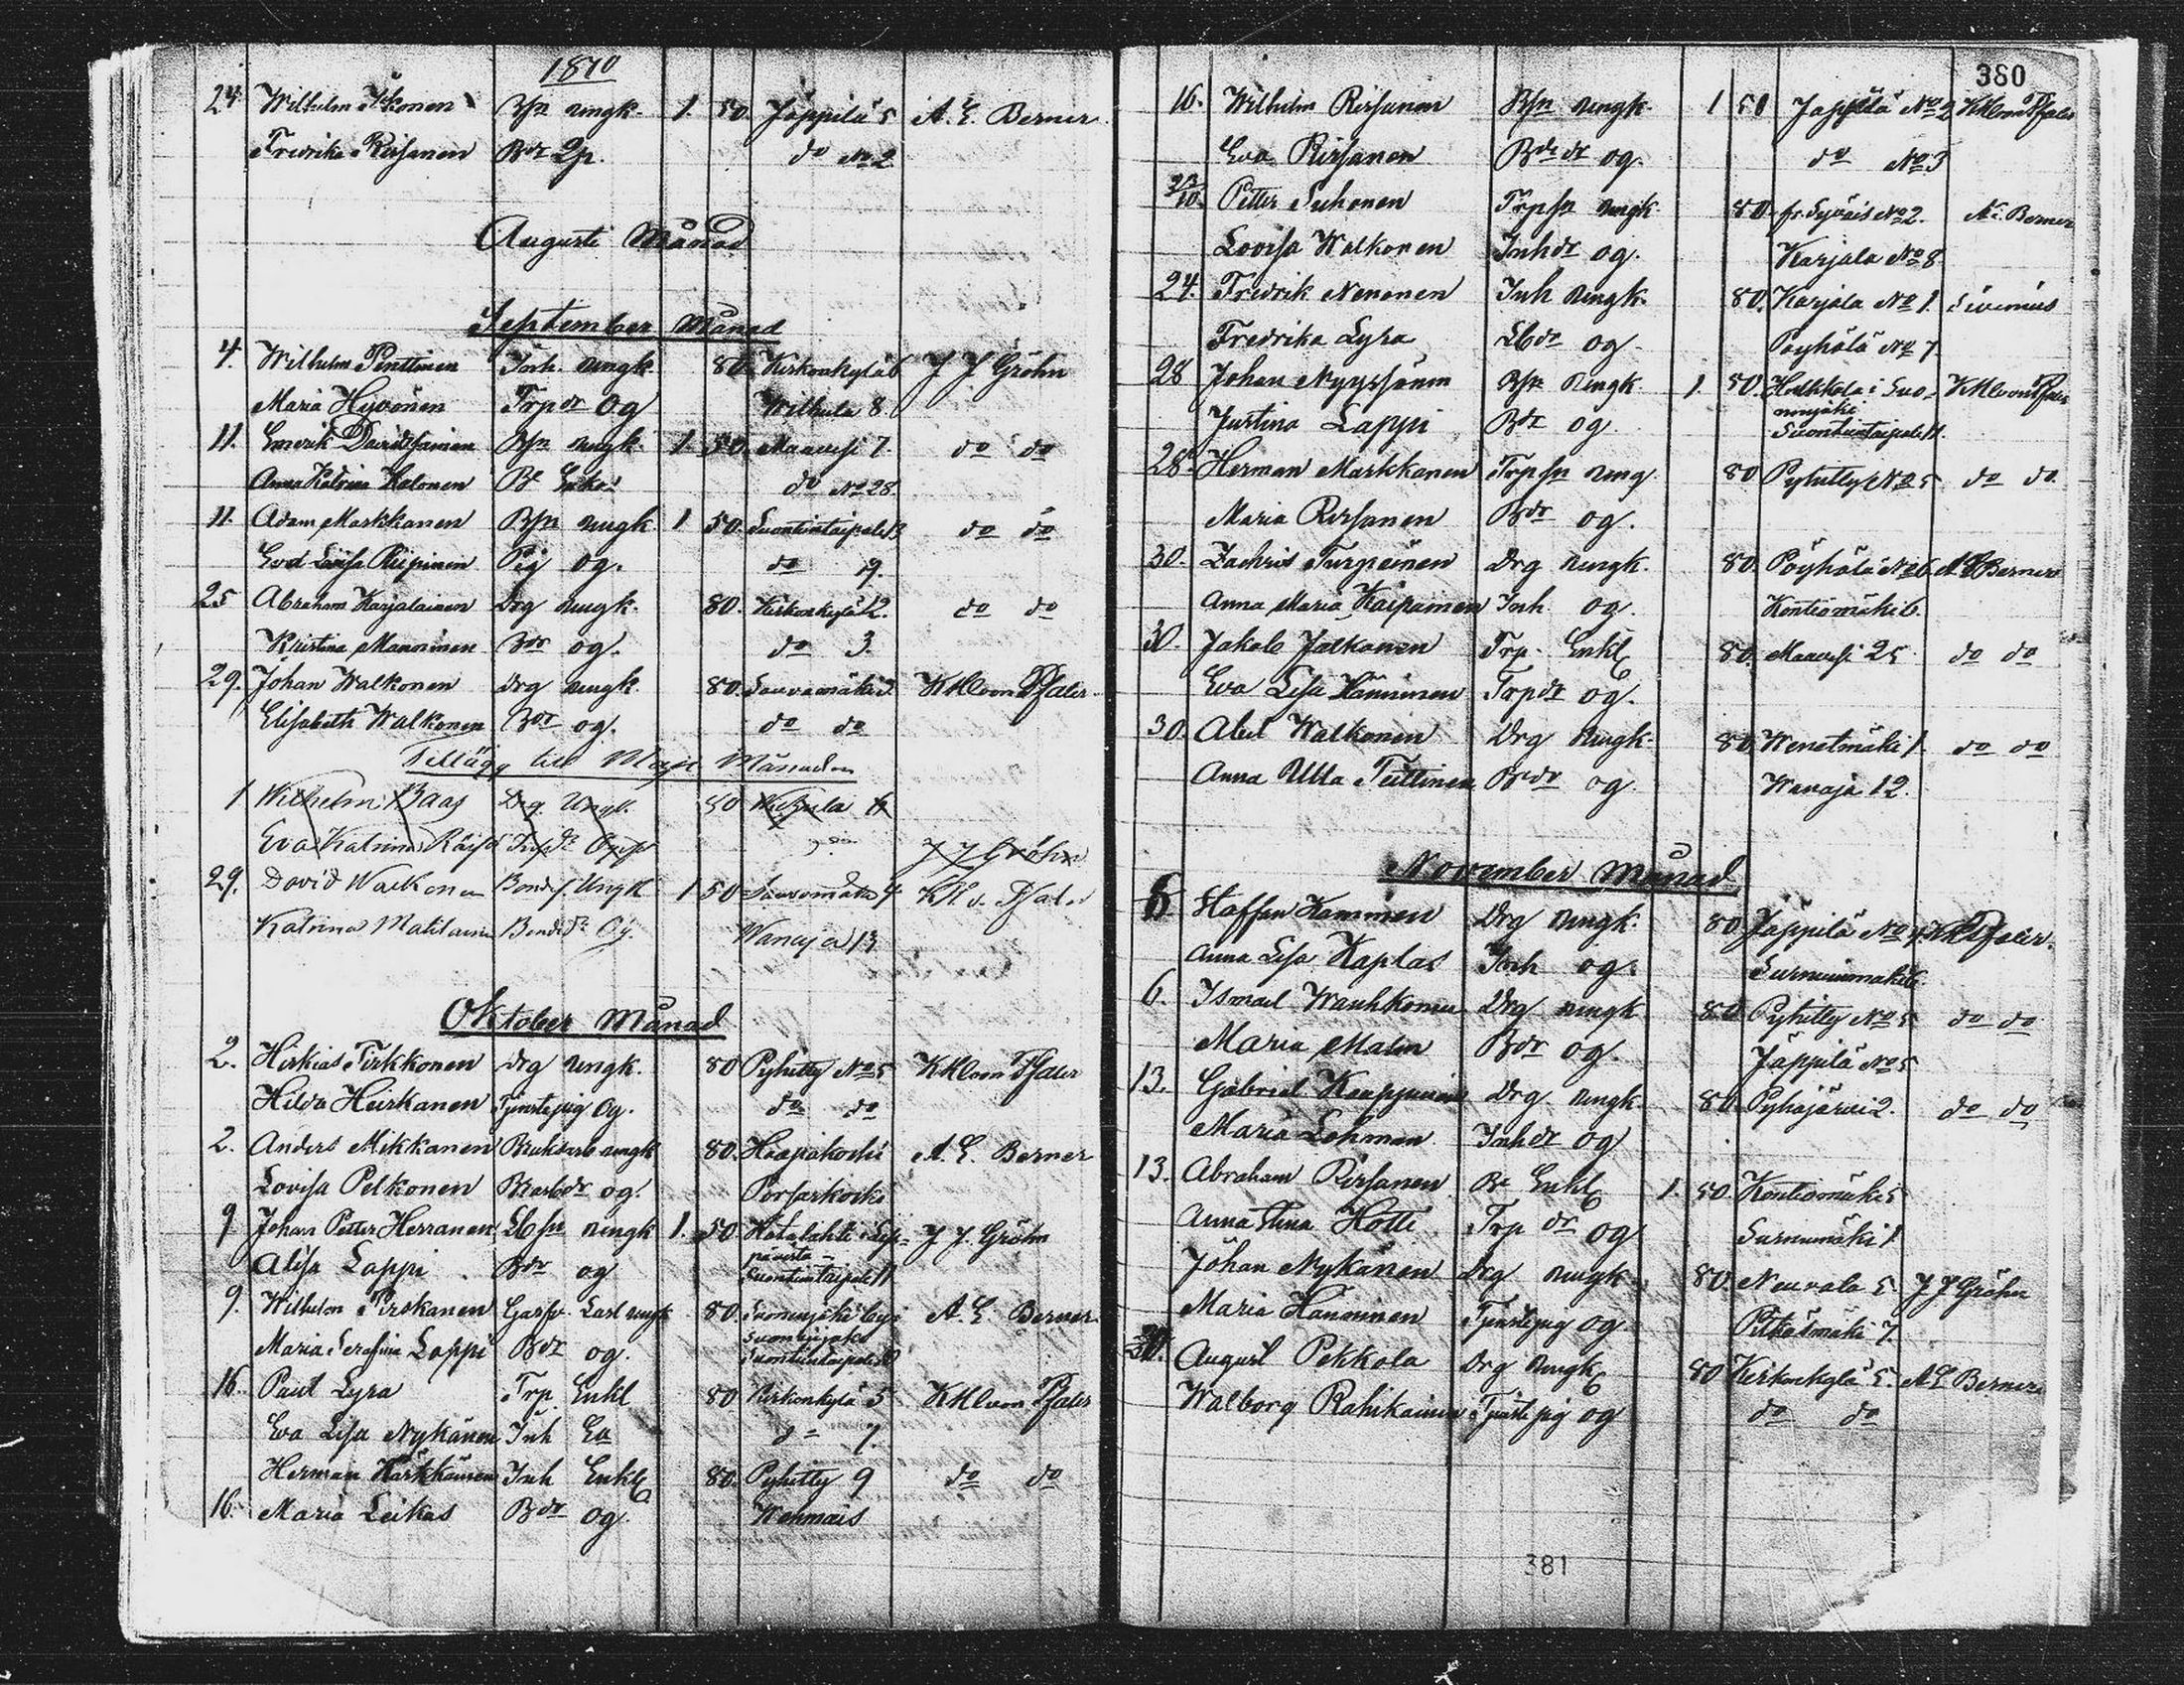 1870
24 Wilhelm Ikonen Bsn ungk. 1. 50 Jäppilä 5 A. E. Berner
Fredrika Rissanen Bdr do No 2
Augusti Månad
September Månad
4. Wilhelm Penttinen Inh. ungk. 80. Kirkonkylä 6 J J Gröhn
Maria Hyvönen Trpdr og Wilhula 8
11. Emerik Davidsainen Bsn ungk. 1. 50. Maavesi 7. do do
Anna Katrina Halonen Bd Enka do No 28.
11. Adam Markkanen Bsn ungk 1 50. Suontientaipale do do
Eva Lovisa Piipinen Pig og. do 9.
25 Abraham Karjalainen Drg ungk. 80. Kirkonkylä 2. do do
Kristina Manninen Bdr og. do 3.
29. Johan Walkonen drg ungk. 80. Sauvamäki KHLvon Pfaler
Elisabeth Walkonen Bdr og. do do
Tillägg till Maji Månaden
1 Wilhelm Baas Drg. Ungk. 80 Wilhula
Eva Katrina Räisä J J Gröhn
29. David Walkonen Bonds. Ungk 1 50 4 KH v. Pfaler
Katrina Matilainen Bonddr Og. Wanaja 13
Oktober Månad
2. Hiskias Tirkkonen drg ungk. 80 Pyhitty No 5 KHLvon Pfaler
Hilda Heiskanen Tjenstepig Og. do do
2. Anders Mikkanen Bruksarb ungk 80. Haapakoski A. E. Berner
Lovisa Pelkonen Barbdr og. Porsaskoski
9 Johan Petter Herranen Lbsn ungk 1. 50 Hatalahti i Lep= J. J. Gröhn
pävirta -
Alisa Lappi. Bdr og Suontientaipale 11
9. Wilhelm Pirskanen Garfv. Lärl ungk 80. A. E. Berner.
Maria Serafina Lappi Bdr og. Suontientaipale
16. Paul Lyra Trp. Enkl 80 Kirkonkylä 5 KHLvon Pfaler
Eva Lisa Nykänen Inh Ea do 7.
Herman Härkkänen Inh Enkl 80. Pyhitty 9 do do
16. Maria Leikas Bdr og. Wenmäis
380
16. Wilhelm Rissanen Bsn ungk 1 50 Jäppilä No 2 KHLvon Pfaler
Eva Rissanen Bdr og. do No 3
23/10. Petter Suhonen Trpsn ungk. 80 No 2. A.E. Berner
Lovisa Walkonen Inhdr og. Karjala No 8
24. Fredrik Nenonen Inh ungk. 80. Karjala No 1. Sirenius
Fredrika Lyra Lbdr og. Pöyhölä No 7.
28 Johan Nyyssönen Bsn ungk. 1. 50. i Suo= KHLvon Pfaler
nenjoki
Justina Lappi Bdr og. Suontientaipale 11.
28 Herman Markkanen Trpsn ung 80 Pyhitty No 5 do do.
Maria Rissanen Bdr og.
30. Zachris Turpeinen Drg ungk. 80. Pöyhölä No 6 A E Berner
Anna Maria Kaipainen Inh og. Kontiomäki 6.
30. Jakob Jalkanen Trp. Enkl 80. Maavesi 25 do do
Eva Lisa Hänninen Trpdr og.
30. Abel Walkonen Drg ungk. 80. Wenetmäki 1. do do
Anna Ulla Teittinen Bdr og Wanaja 12.
November Månad
6 Staffan Hamminen Drg ungk. 80 Jäppilä No 4 KHLPfaler.
Anna Lisa Kaplas Inh og. Surnumäki 6.
6. Ismael Wauhkonen Drg ungk 80 Pyhitty No 5 do do
Maria Malin Bdr og. Jäppilä No 5
13. Gabriel Kauppinen Drg ungk. 80. Pyhäjärvi 2. do do
Maria Lehman Inhdr og
13. Abraham Rissanen Bd Enkl 1. 50. Kontiomäki 5
Anna Stina Hotti Trp dr og Surnumäki 1
Johan Nykänen drg ungk. 80. Neuvola 5. J J Gröhn
Maria Hänninen Tjenstepig og Pitkälmäki 7.
August Pekkola Drg ungk 80 Kirkonkylä 5. A E Berner
Walborg Rahikainen Tjenstepig og do do
381